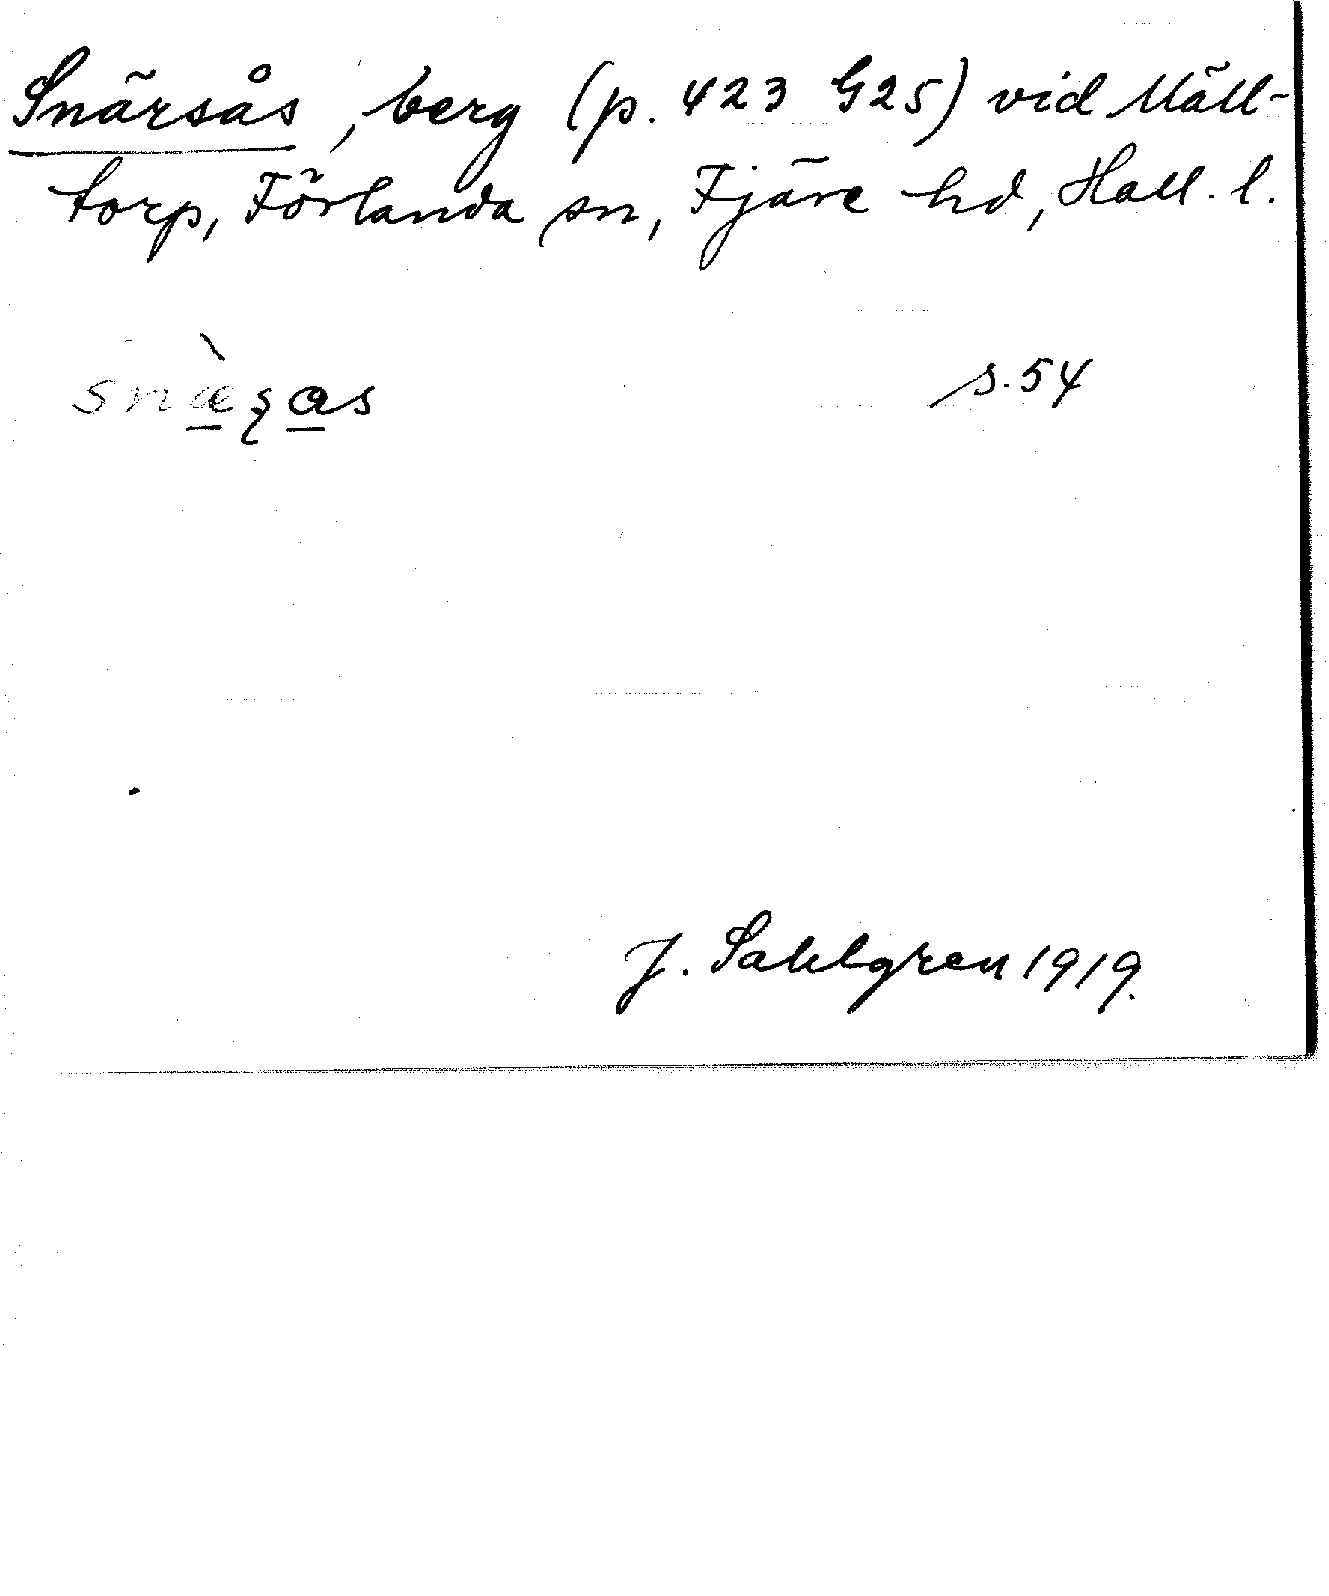 Snärsås, berg (p. 423 G25) vid Mäll-
torp, Förlanda sn, Fjäre hd, Hall. l.
s. 54
J. Sahlgren 1919.